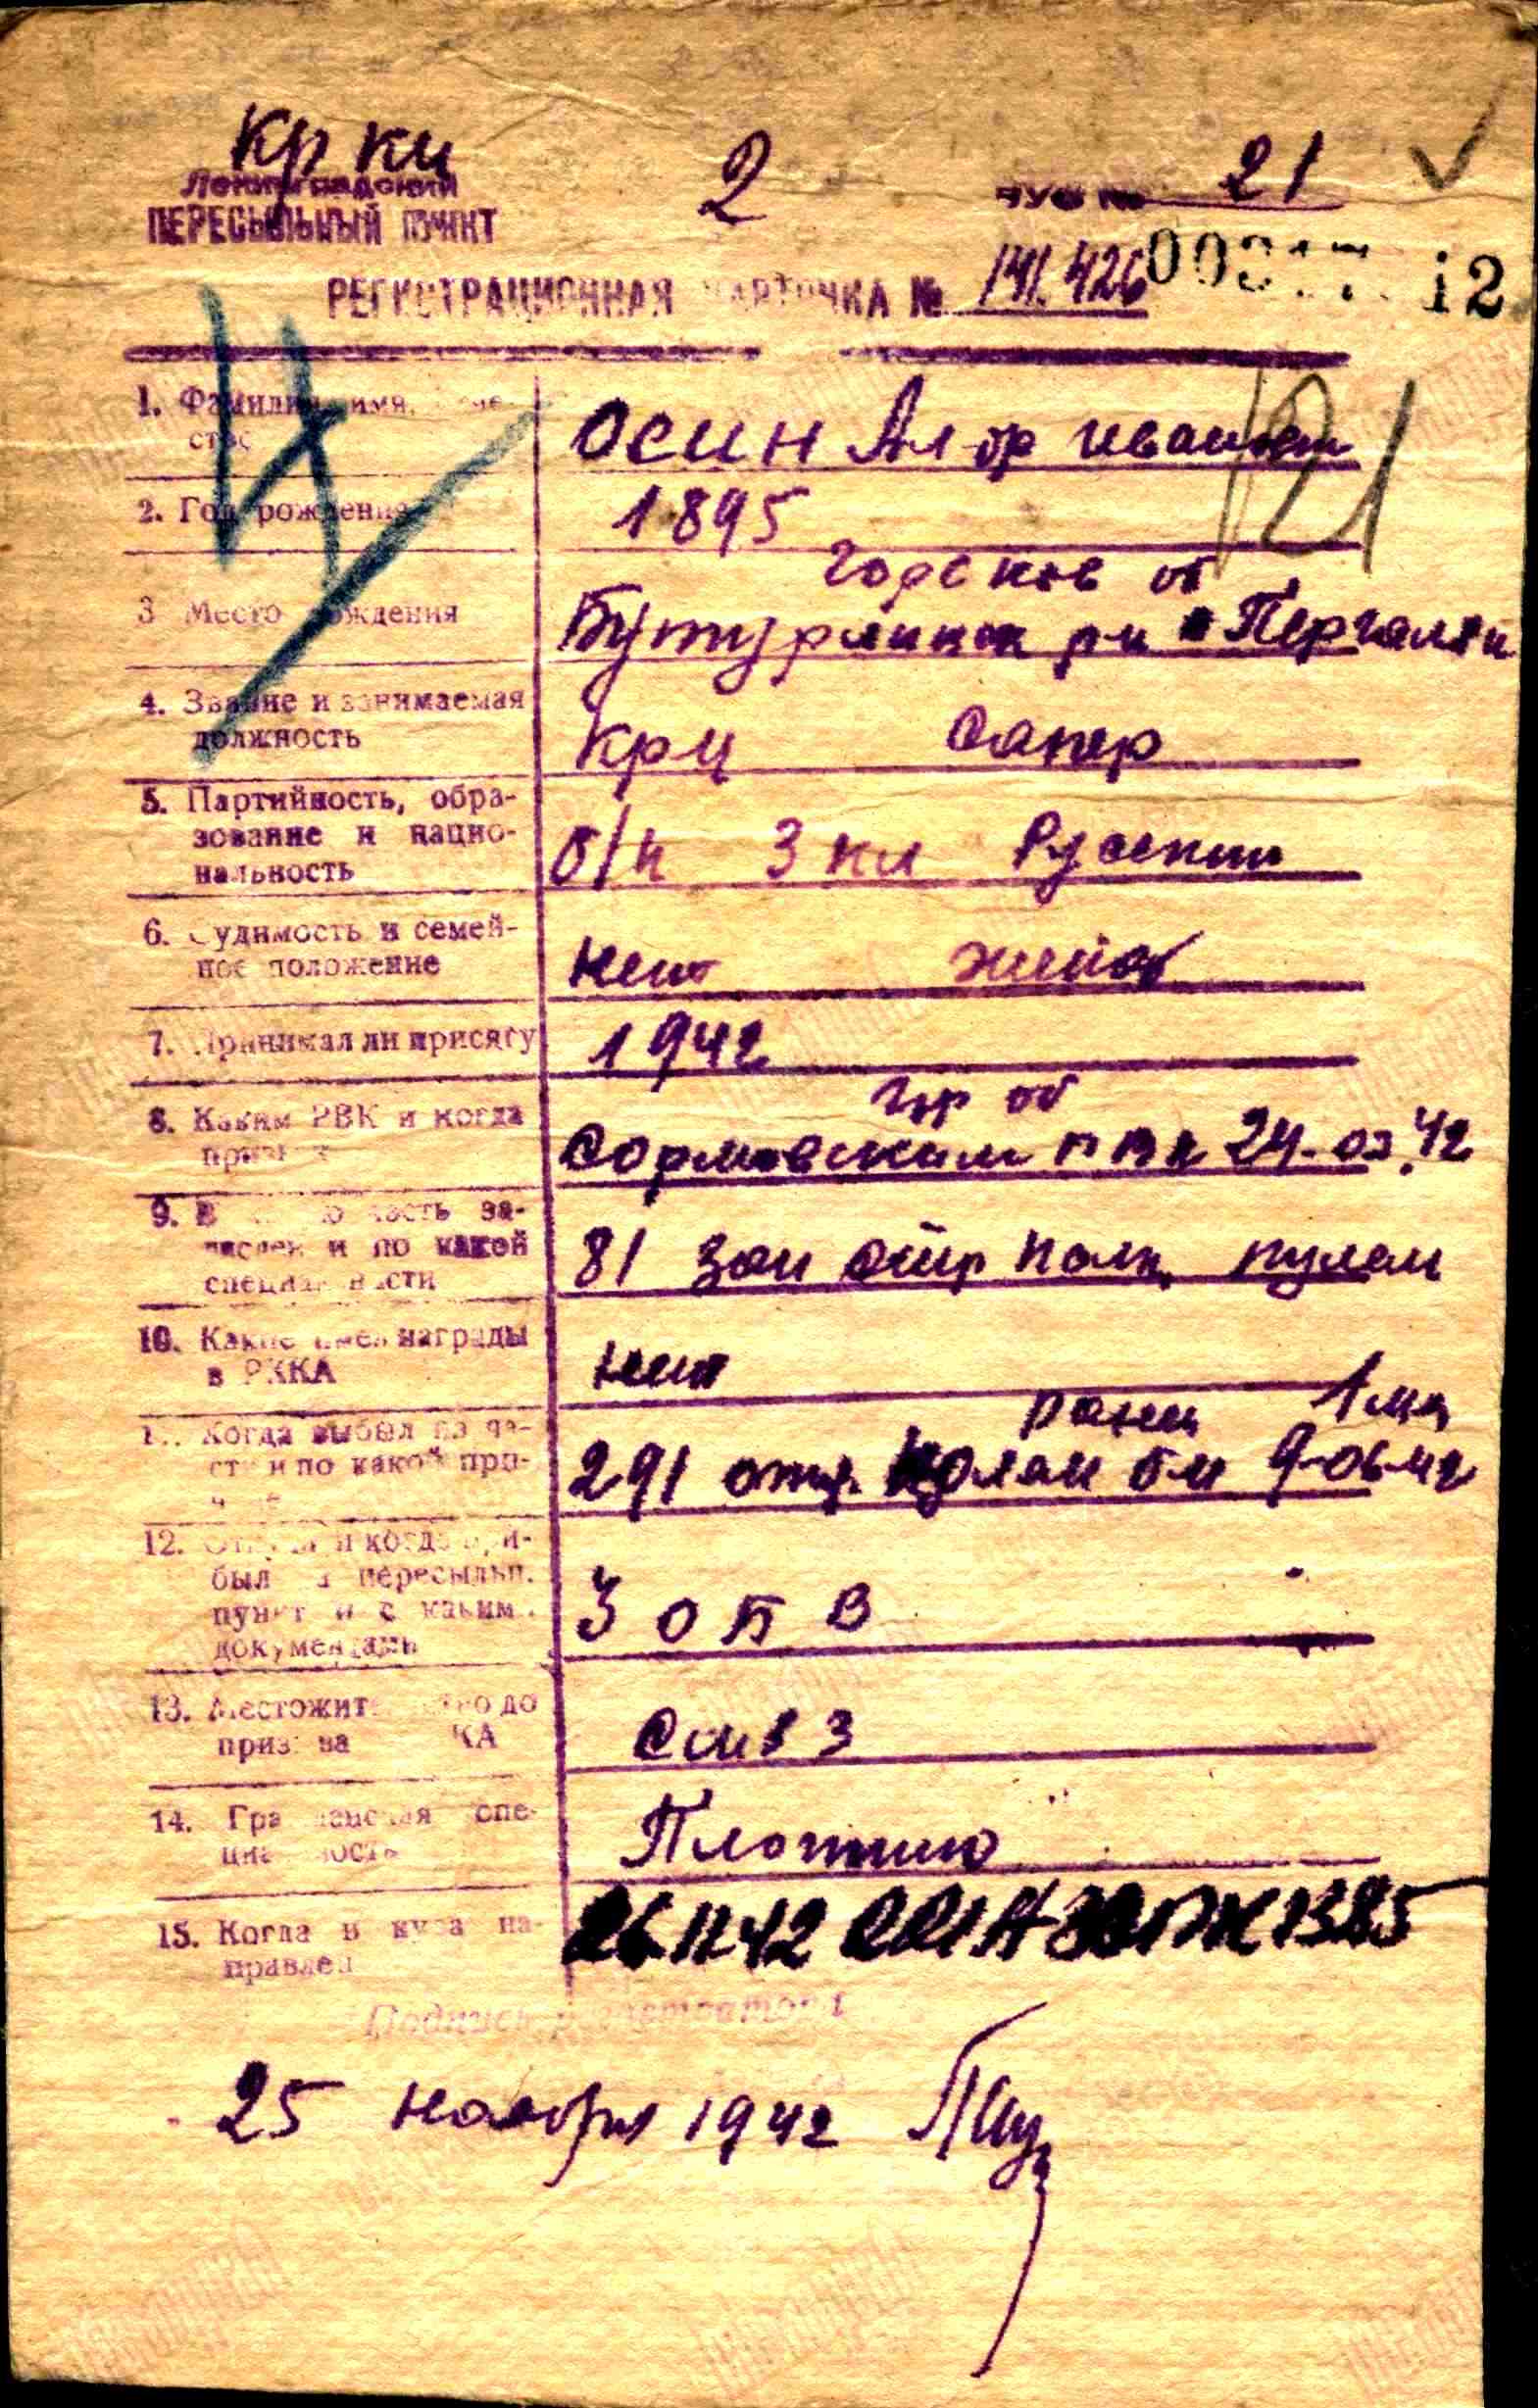 Кр ки
2
ПУФ № 21
Ленинградский
ПЕРЕСЫЛЬНЫЙ ПУНКТ
РЕГИСТРАЦИОННАЯ КАРТОЧКА № 141.426
12
121
1. Фамилия, имя, отче-
ство
Осин Ал-др Иванович
2. Год рождения
1895
3 Место рождения
Горьков об
Бутурлинск р-н
4. Звание и занимаемая
должность
Кр-ц Сапер
5. Партийность, обра-
зование и нацио-
нальность
б/п 3 кл Русский
6. Судимость и семей-
ное положение
нет женат
7. Принимал ли присягу
1942
8. Каким РВК и когда
призван
Гор об
Сормовским РВК 24-03.42
9. В какую часть за-
числен и по какой
специальности
81 зап стр полк, пулем
10. Какие имел награды
в РККА
нет
11. Когда выбыл из ча-
сти и по какой при-
чине
ранен
291 отд. пулем б-н 9-06-42
12. Откуда и когда при-
был на пересыльн.
пункт и с какими
документами
З О П В
13. Местожительство до
призыва КА
См в 3
14. Гражданская спе-
циальность
Плотник
15. Когда и куда на-
правлен
26.11.42
Подпись регистратора
25 ноября 1942